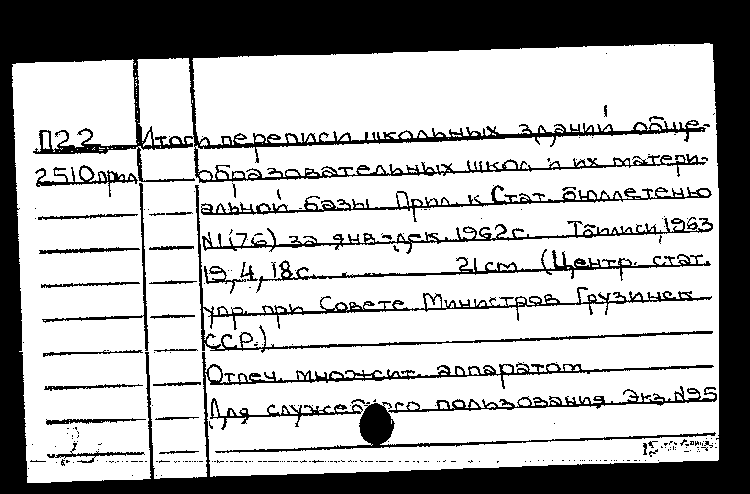 П22 Итоги переписи школьных зданий обще-
2510прил образовательных школ и их матери-
альной базы. Прил. к Стат. бюллетеню
N1(76) за янв.-дек. 1962г. Тбилиси, 1963
19, 4, 18с. 21см. (Центр. стат.
упр. при Совете Министров Грузинск
ССР.).
Отпеч. множит. аппаратом.
Для служебного пользования. Экз. №95